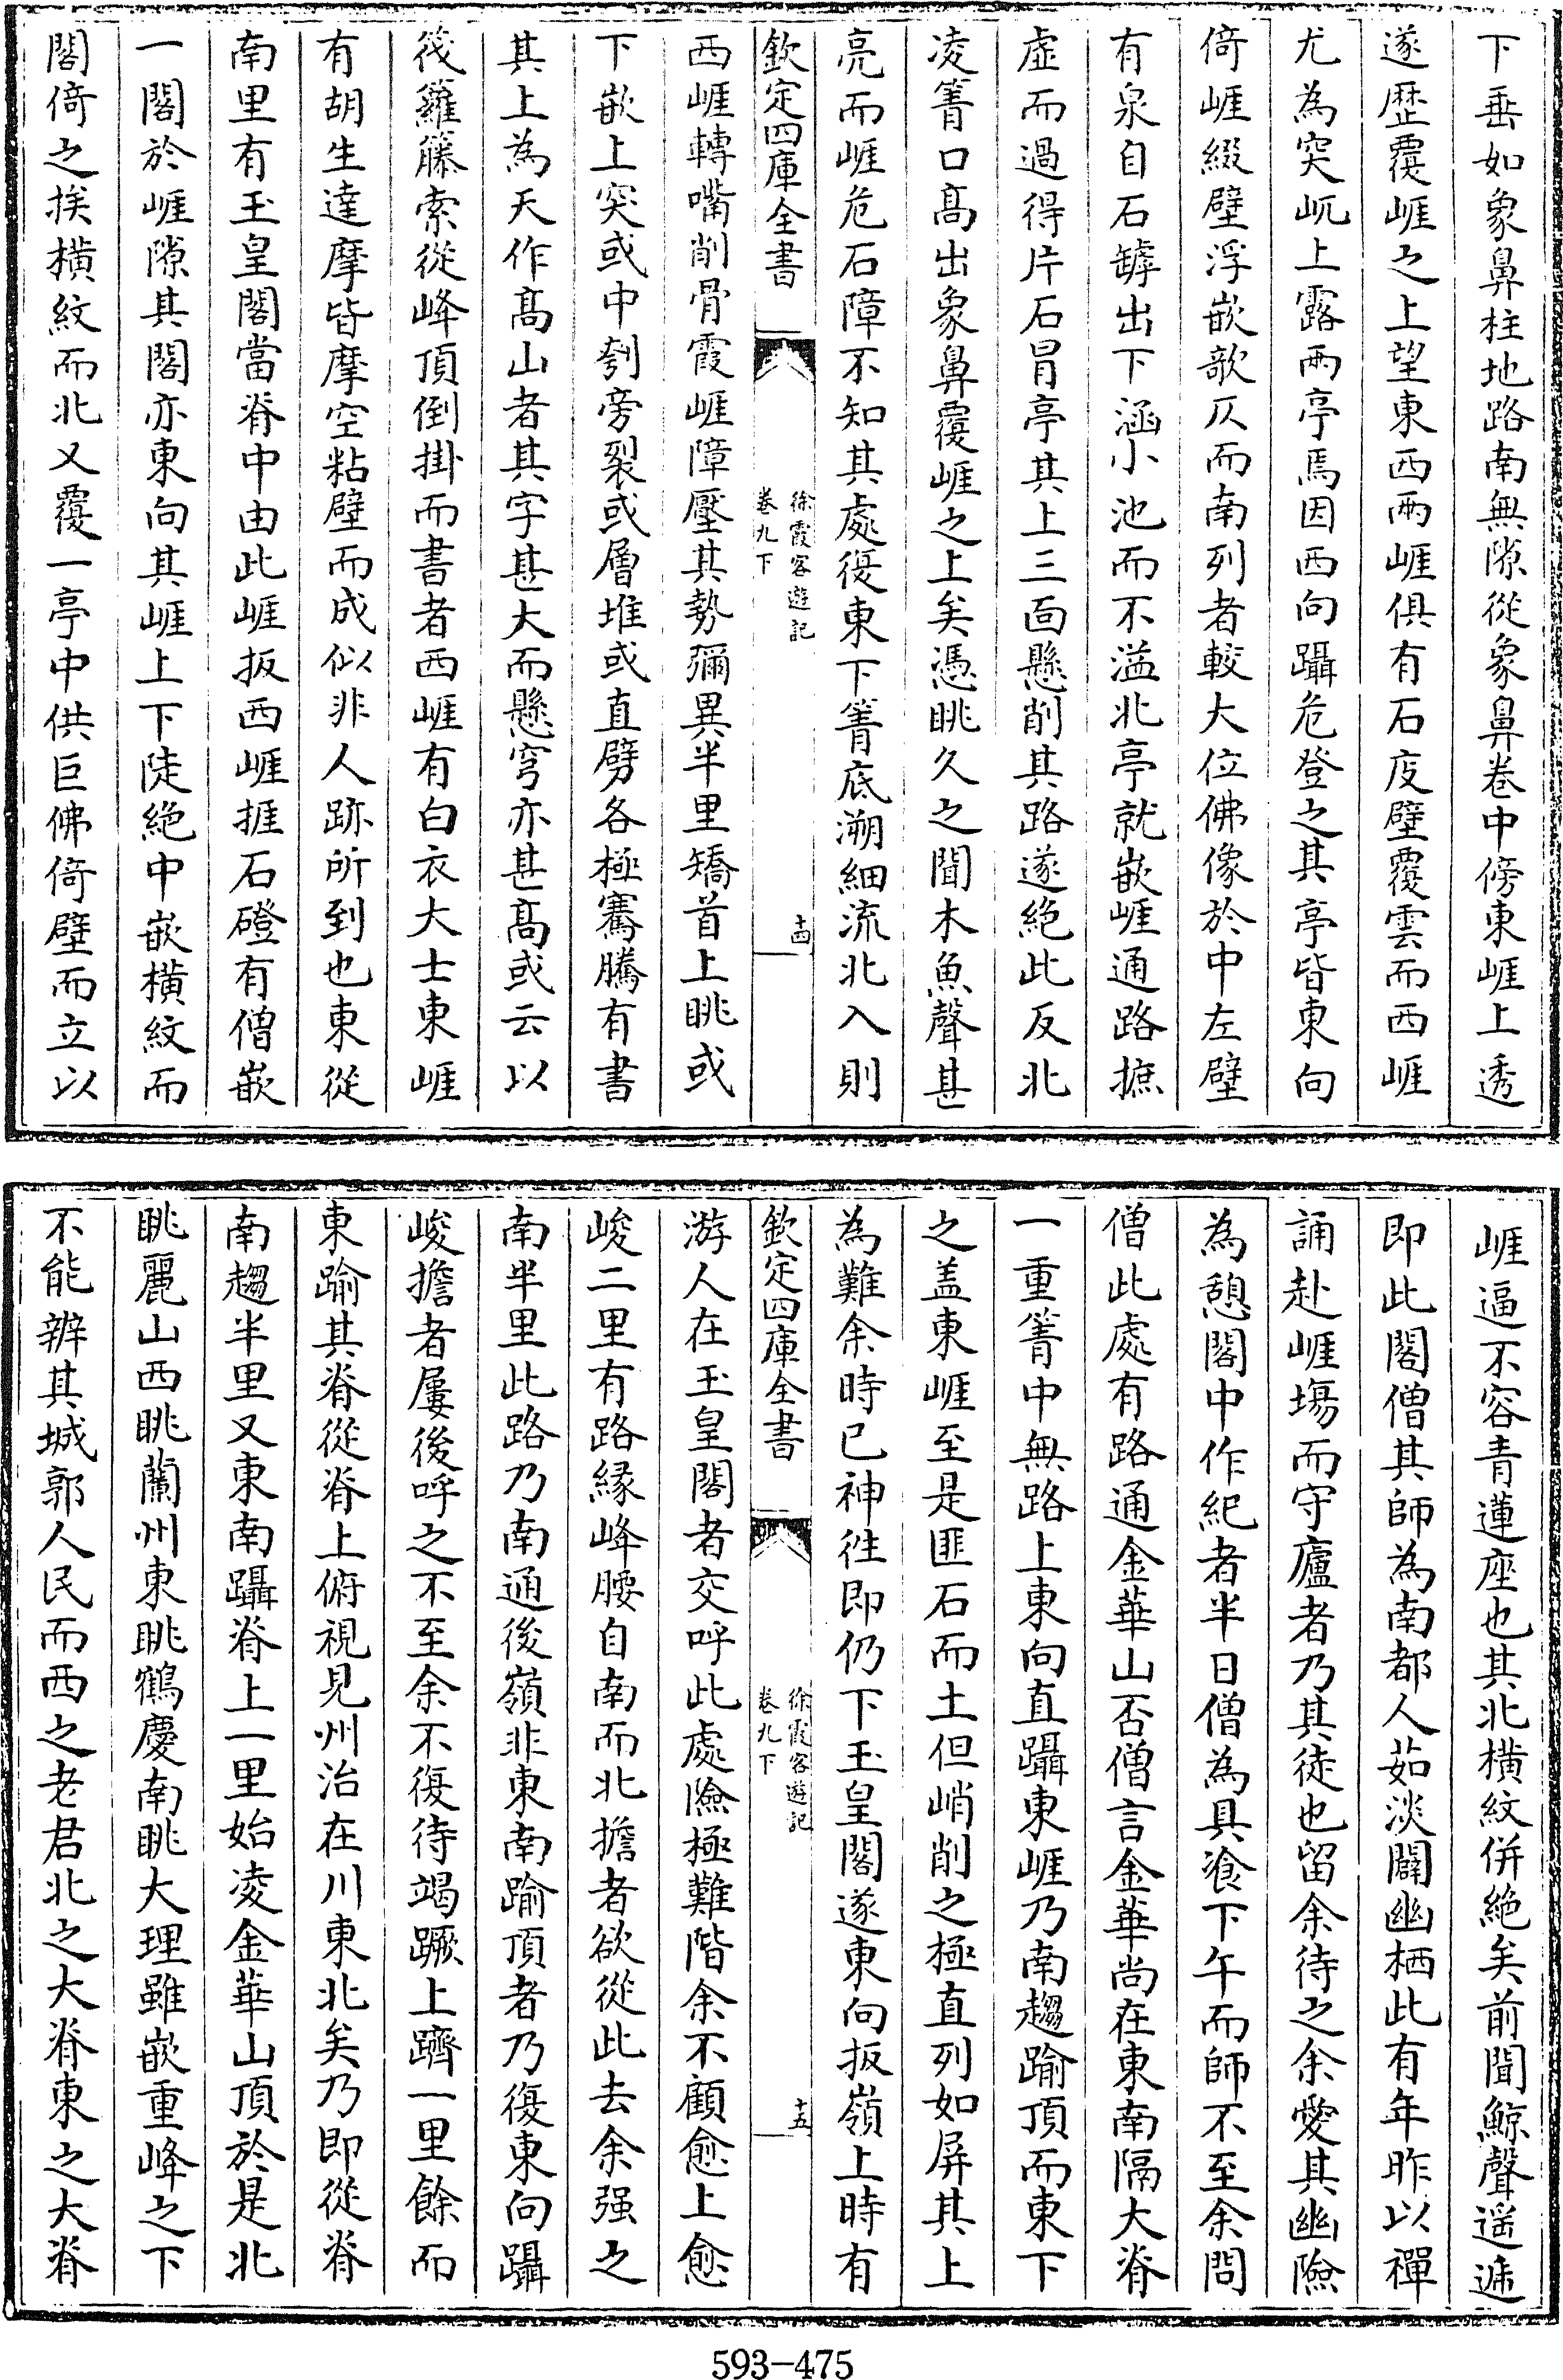 下垂如象鼻柱地路南無隙從象鼻巻中傍東崕上透
遂歴覆崕之上望東西兩崕俱有石庋壁覆雲而西崕
尤為突屼上露兩亭焉因西向躡危登之其亭皆東向
倚崕綴壁浮嵌欹仄而南列者較大位佛像於中左壁
有泉自石罅出下涵小池而不溢北亭就嵌崕通路摭
虛而過得片石冐亭其上三面懸削其路遂絶此反北
凌箐口髙出象鼻覆崕之上矣憑眺久之聞木魚聲甚
亮而崕危石障不知其處復東下箐底溯細流北入則
欽定四庫全書
徐霞客遊記
卷九下
十四
西崕轉嘴削骨霞崕障壓其勢彌異半里矯首上眺或
下嵌上突或中刳旁裂或層堆或直劈各極騫騰有書
其上為天作髙山者其字甚大而懸穹亦甚髙或云以
筏籮藤索從峰頂倒掛而書者西崕有白衣大士東崕
有胡生達摩皆摩空粘壁而成似非人跡所到也東從
南里有玉皇閣當脊中由此崕扳西崕捱石磴有僧嵌
一閣於崕隙其閣亦東向其崕上下陡絶中嵌橫紋而
閣倚之挨橫紋而北又覆一亭中供巨佛倚壁而立以
崕逼不容青蓮座也其北橫紋併絶矣前聞鯨聲遥遞
即此閣僧其師為南都人茹淡闢幽栖此有年昨以禪
誦赴崕塲而守廬者乃其徒也留余待之余愛其幽險
為憩閣中作紀者半日僧為具飡下午而師不至余問
僧此處有路通金華山否僧言金華尚在東南隔大脊
一重箐中無路上東向直躡東崕乃南趨踰頂而東下
之盖東崕至是匪石而土但峭削之極直列如屏其上
為難余時已神徃即仍下玉皇閣遂東向扳嶺上時有
欽定四庫全書
徐霞客遊記
卷九下
十五
游人在玉皇閣者交呼此處險極難階余不顧愈上愈
峻二里有路縁峰腰自南而北擔者欲從此去余强之
南半里此路乃南通後嶺非東南踰頂者乃復東向躡
峻擔者屢後呼之不至余不復待竭蹶上躋一里餘而
東踰其脊從脊上俯視見州治在川東北矣乃即從脊
南趨半里又東南躡脊上一里始凌金華山頂於是北
眺麗山西眺蘭州東眺鶴慶南眺大理雖嵌重峰之下
不能辨其城郭人民而西之老君北之大脊東之大脊
593-475